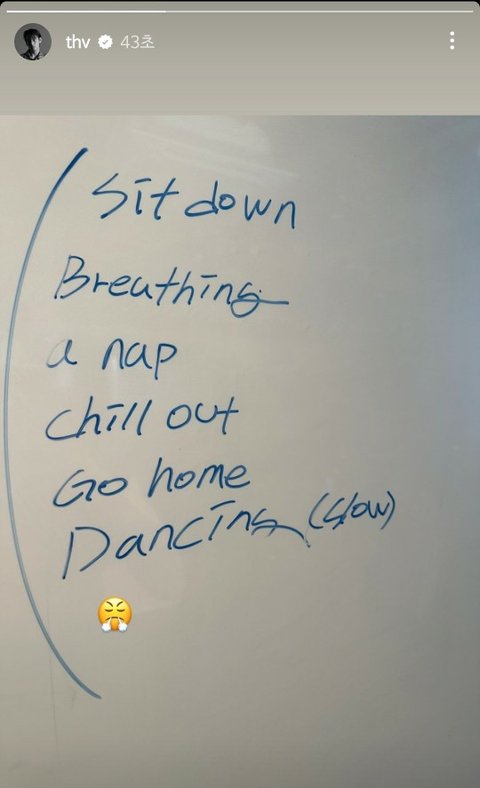 thv 43초
Sit down
Breathing
a nap
chill out
Go home
Dancing (slow)